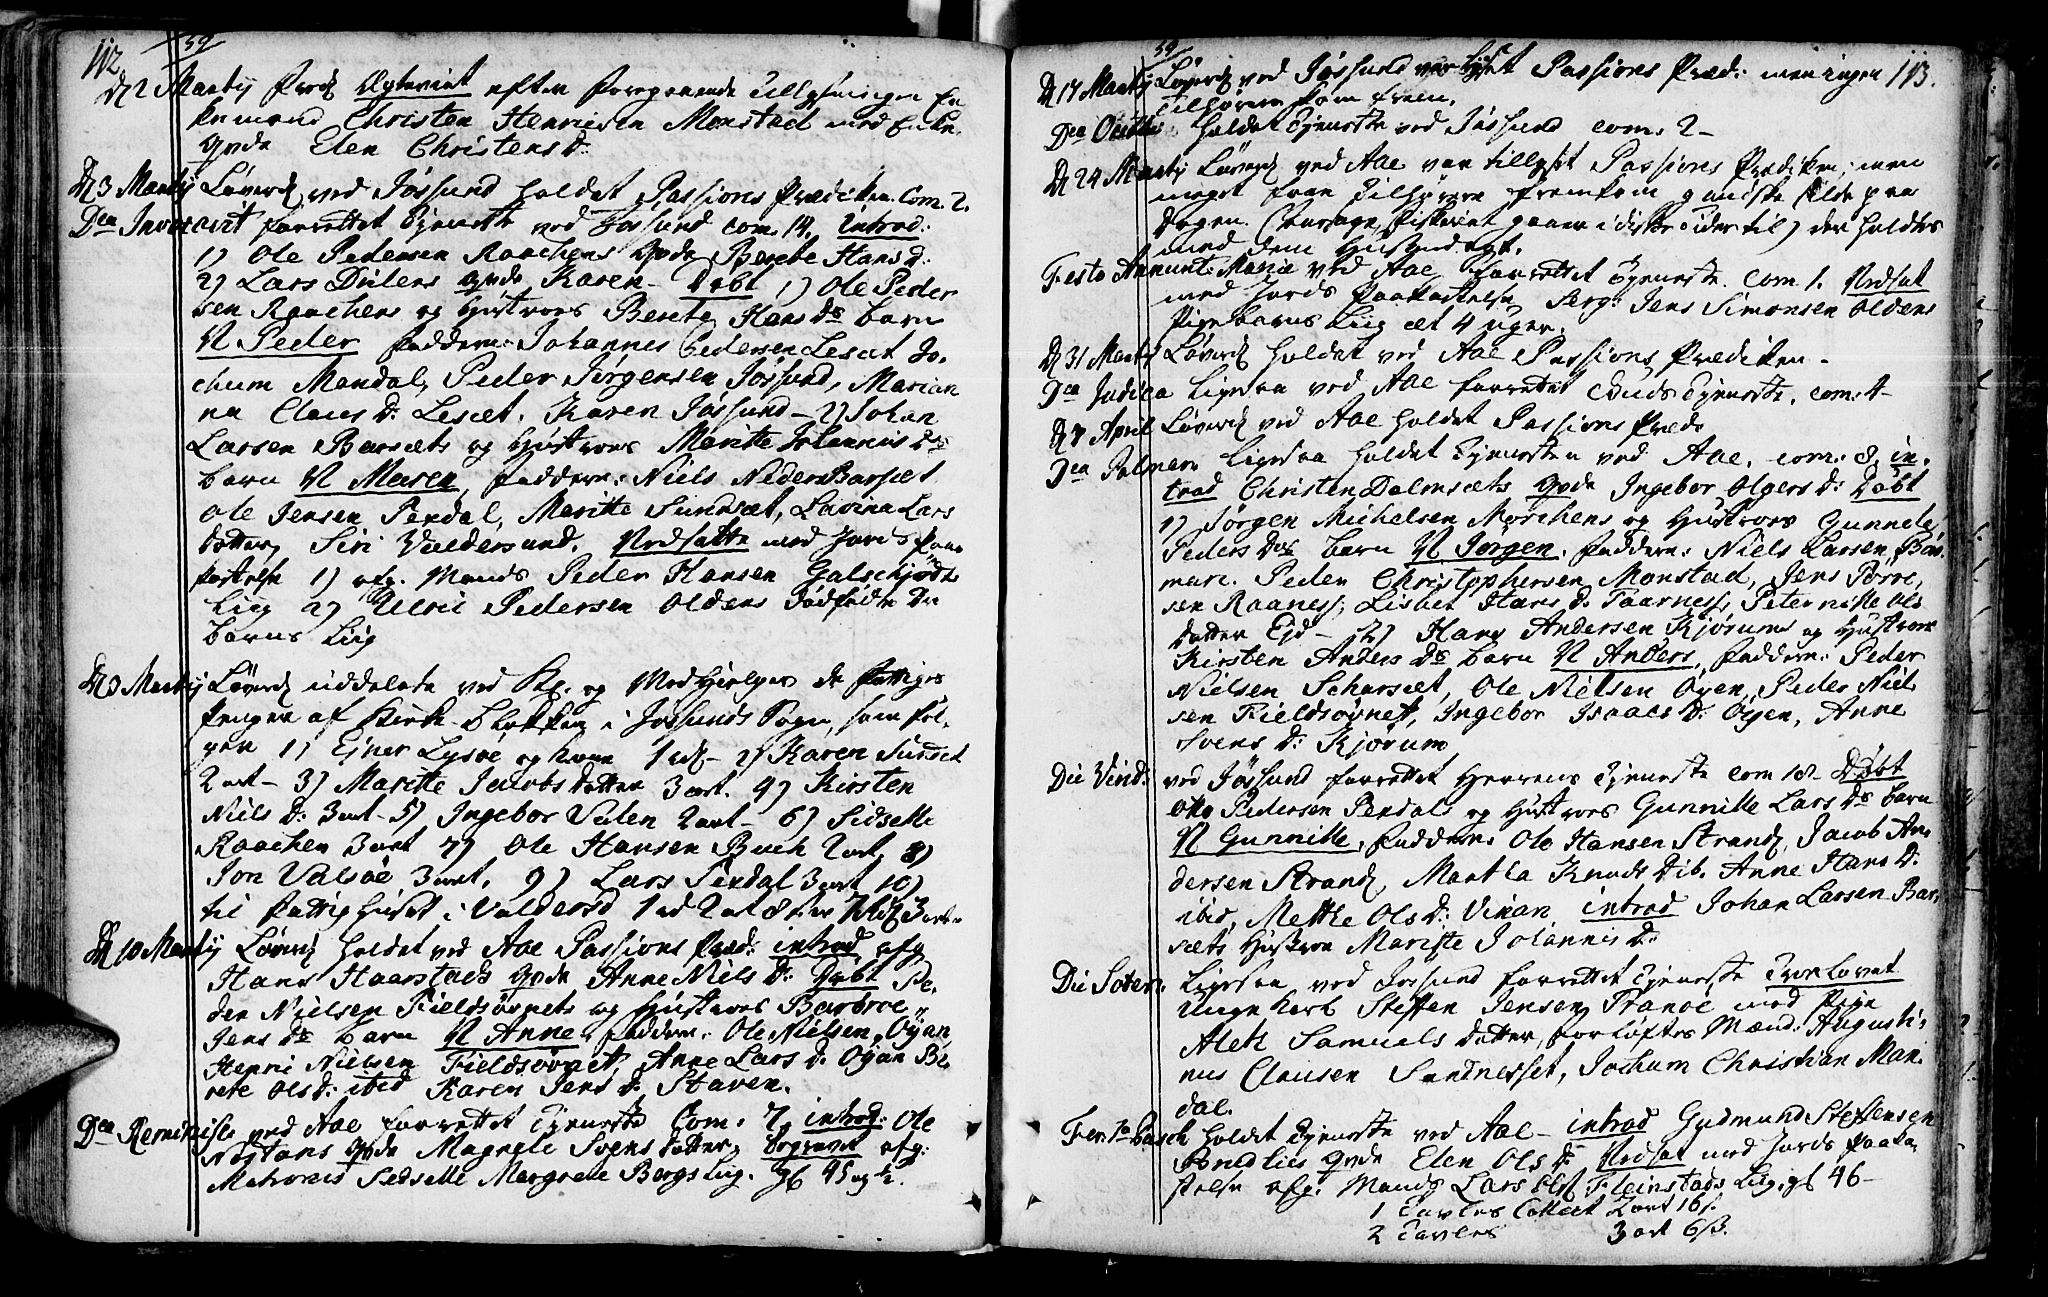 112 59
D. 2 Martij Præd. Ægteviet efter foregaaende Tillysninger En-
kemand Christen Henrichsen Monstad med Enke
qvde Elen Christens D:
D. 3 Martij Løverd. ved Jøssund holdet Passions Prædiken. Com. 2.
Dca Invocavit forrettet Tjeneste ved Jøssund com. 14. introd:
1) Ole Pedersen Raachens qvde Berete Hans D:
2) Lars Dülens qvde Karen - Døbt 1) Ole Peder
sen Raachens og Hustroes Berete Hans Ds barn
N Peder faddere: Johannes Pedersen Lesæt Jo-
chum Mandal, Peder Jørgensen Jøssund, Marian
na Claus D: Lesæt. Karen Jøssund - 2) Johan
Larsen Barsæts og Hustroes Maritte Johannis Ds
barn N Maren, faddere: Niels Neder Barsæt
Ole Jensen Serdal, Maritte Sundsæt, Lavina Lars
datter, Siri Valdersund. Nedsatte med Jords paa
kastelse 1) afg. Mands Peder Hansen Galschjødts
Liig 2) Ulric Pedersen Oldens dødfødte Drenge
barns Liig
D. 9 Martij Løverd. uddelede ved og Medhielper de fattiges
penger af Kirke-blokken i Jøssunds Sogn, som føl-
ger 1) Ejner Lysøe og 1 rd - 2) Karen Sundset
2 ort - 3) Maritte Jacobs datter 3 ort. 4) Kirsten
Niels D: 3 ort - 5) Ingebor Veden 2 ort - 6) Sidselle
Raachen 3 ort 7) Ole Hansen Buch 2 ort 8)
Jon Valsøe 3 ort. 9) Lars Serdal 3 ort 10)
til fattighuset i Valdersd 1 rd 2 ort
D. 10 Martij Løverd. holdet ved Aae Passions Præd: introd. afg
Hans Haarstads qvde Anne Niels D: Døbt Pe-
der Nielsen Fieldsøvnets og Hustroes Barbroe
Jens Ds barn N Anne faddere: Ole Nielsen Oyan
Henric Nielsen Fieldsøvnet, Anne Lars D. Oyan Be
rete Ols D: ibid Karen Jens D: Staven.
Dca Reminisc: ved Aae forrettet Tjeneste Com. 7. introd: Ole
Nøstans qvde Magnele Svens datter, begravet afg:
Matronis Sedselle Margrete Bergs Liig. gl 45 og ½.
59 113.
D. 17 Martij Løverd. ved Jøssund var lyset Passions Præd: men ingen
Tilhørere kom frem.
Dca Oculi holdet Tjeneste ved Jøssund com. 2 -
D. 24 Martij Løverd. ved Aae var tillyset Passions Prædiken; men
noget faae Tilhørere fremkom ganske silde paa
Dagen. (Aarsage, fiskeriet gaaer i disse tider til) der holdtes
med dem Husandagt.
Festo Annunt: Mariæ ved Aae forrettet Tjeneste. com 1. Nedsat
med Jords paakastelse Serg: Jens Simonsen Oldens
Pigebarns Liig æt 4 uger.
D. 31 Martij Løverd. holdet ved Aae Passions Prædiken -
Dca Judica Ligesaa ved Aae forrettet Guds Tjeneste. com: 4 -
D. 7 April Løverd. ved Aae holdet Passions Præd.
Dca Palmar: Ligesaa holdet Tjenesten ved Aae. com: 8. in-
trod Christen Dalmsæts qvde Ingebor Olgers D: Døbt
1) Jørgen Michelsen Morchens og Hustroes Gunnele
Peders Ds barn N Jørgen. faddere: Niels Larsen Bos
marc. Peder Christophersen Monstad, Jens Sørre,
sen Raaness, Lisbet Hans D: Taarness, Peternille Ols
datter Ejd - 2) Hans Andersen Kjørums og Hustroes
Kirsten Anders Ds barn N Anders, faddere: Peder
Nielsen Scharsæt, Ole Nielsen Oyen, Peder Niel
sen Fieldsøvnet, Ingebor Isaacs D: Oyen, Anne
Svens D: Kjørum
Die Virid: ved Jøssund forrettet Herrens Tjeneste com 18. Døbt
Ole Pedersen Serdals og Hustroes Gunnille Lars Ds barn
N Gunnille, faddere: Ole Hansen Strand, Jacob An-
dersen Strand, Martha Knuds D ib. Anne Hans D:
ibid, Mette Ols D: Vinan introd Johan Larsen Bar-
sæts Hustroe Mariste Johannis D:
Die Sater: Ligesaa ved Jøssund forrettet Tjeneste Trolovet
Unge Karl Steffen Jensen Pranoe med Pige
Alek Samuels datter, forløfts Mænd: Augusti-
nus Clausen Sundnesset, Jochum Christian Man-
dal.
Fer: 1a Pasch holdet Tjeneste ved Aae - introd Gudmund Steffensen
Bredlies qvde Elen Ols D: Nedsat med Jords paaka-
stelse afg. Mands Lars Fleinstads Liig, gl 46 -
1 Tavles Collect 2 ort 16 s.
2 Tavles 3 ort 6 s.